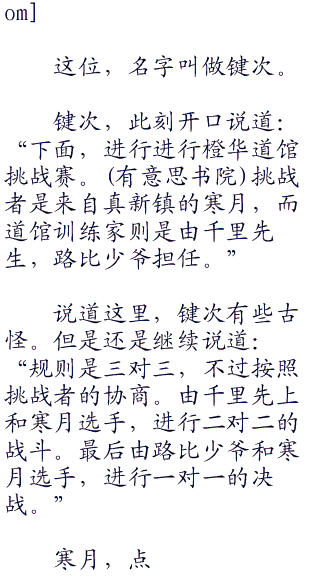 om]
这位，名字叫做键次。
键次，此刻开口说道：
“下面，进行进行橙华道馆
挑战赛。(有意思书院)挑战
者是来自真新镇的寒月，而
道馆训练家则是由千里先
生，路比少爷担任。”
说道这里，键次有些古
怪。但是还是继续说道：
“规则是三对三，不过按照
挑战者的协商。由千里先上
和寒月选手，进行二对二的
战斗。最后由路比少爷和寒
月选手，进行一对一的决
战。”
寒月，点